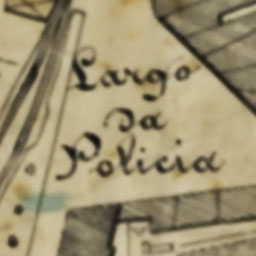 Largo
da
Policia